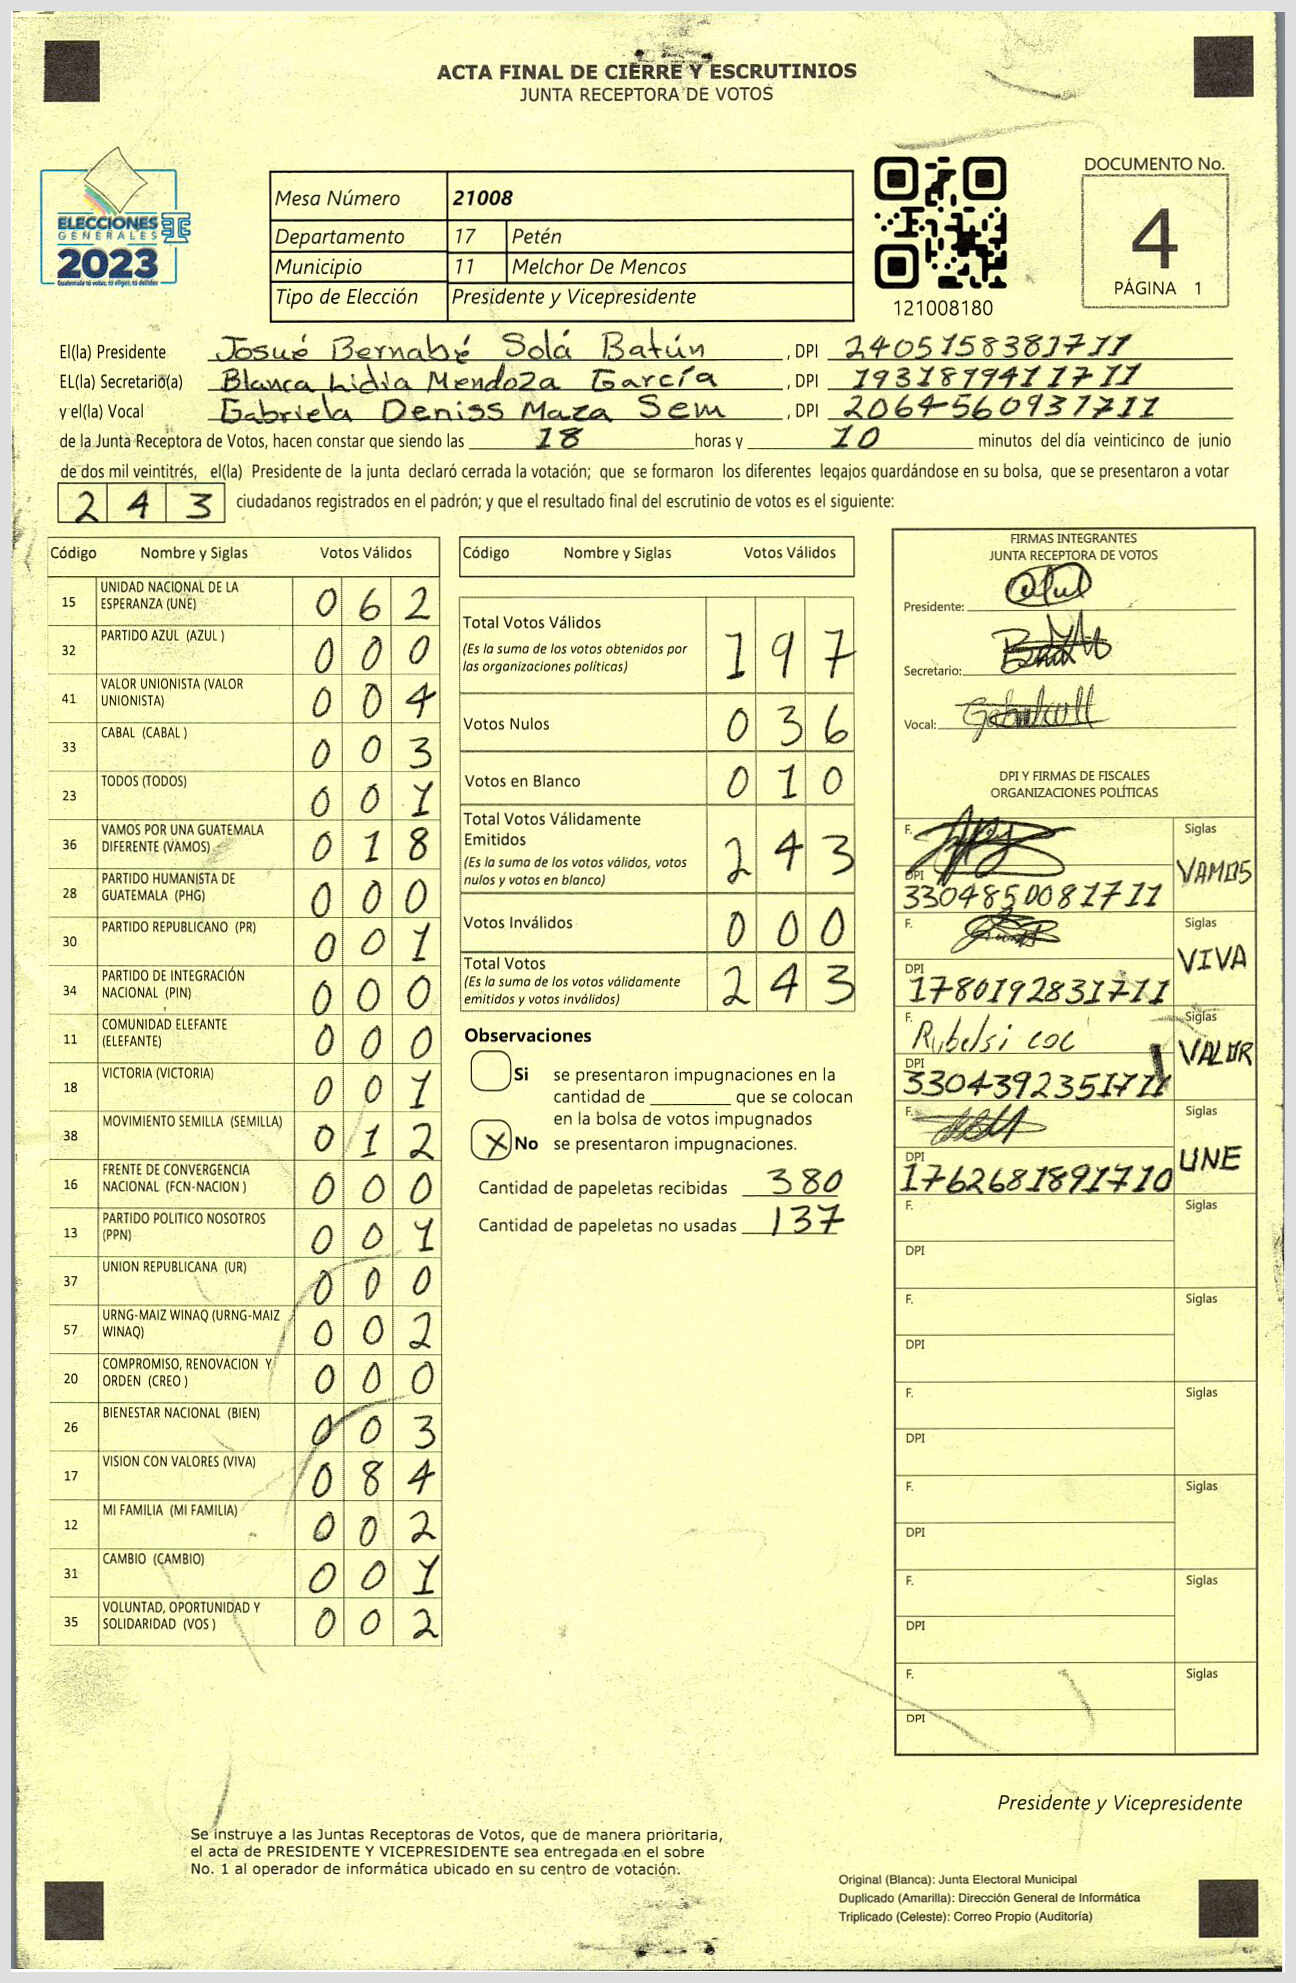 ACTA FINAL DE CIERRE Y ESCRUTINIOS
JUNTA RECEPTORA DE VOTOS
ELECCIONES
GENERALES
2023
Guatemala tú votas, tú eliges, tú decides
Mesa Número 21008
Departamento 17 Petén
Municipio 11 Melchor De Mencos
Tipo de Elección Presidente y Vicepresidente
121008180
DOCUMENTO No.
4
PÁGINA 1
El(la) Presidente Josué Bernabé Solá Batún , DPI 2405158381711
EL(la) Secretario(a) Blanca Lidia Mendoza García , DPI 1931899411711
y el(la) Vocal Gabriela Deniss Maza Sem , DPI 2064560931711
de la Junta Receptora de Votos, hacen constar que siendo las 18 horas y 10 minutos del día veinticinco de junio
de dos mil veintitrés, el(la) Presidente de la junta declaró cerrada la votación; que se formaron los diferentes legajos guardándose en su bolsa, que se presentaron a votar
243 ciudadanos registrados en el padrón; y que el resultado final del escrutinio de votos es el siguiente:
Código Nombre y Siglas Votos Válidos
15 UNIDAD NACIONAL DE LA ESPERANZA (UNE) 062
32 PARTIDO AZUL (AZUL ) 000
41 VALOR UNIONISTA (VALOR UNIONISTA) 004
33 CABAL (CABAL ) 003
23 TODOS (TODOS) 001
36 VAMOS POR UNA GUATEMALA DIFERENTE (VAMOS) 018
28 PARTIDO HUMANISTA DE GUATEMALA (PHG) 000
30 PARTIDO REPUBLICANO (PR) 001
34 PARTIDO DE INTEGRACIÓN NACIONAL (PIN) 000
11 COMUNIDAD ELEFANTE (ELEFANTE) 000
18 VICTORIA (VICTORIA) 001
38 MOVIMIENTO SEMILLA (SEMILLA) 012
16 FRENTE DE CONVERGENCIA NACIONAL (FCN-NACION ) 000
13 PARTIDO POLITICO NOSOTROS (PPN) 001
37 UNION REPUBLICANA (UR) 000
57 URNG-MAIZ WINAQ (URNG-MAIZ WINAQ) 002
20 COMPROMISO, RENOVACION Y ORDEN (CREO ) 000
26 BIENESTAR NACIONAL (BIEN) 003
17 VISION CON VALORES (VIVA) 084
12 MI FAMILIA (MI FAMILIA) 002
31 CAMBIO (CAMBIO) 001
35 VOLUNTAD, OPORTUNIDAD Y SOLIDARIDAD (VOS ) 002
Código Nombre y Siglas Votos Válidos
Total Votos Válidos 197
(Es la suma de los votos obtenidos por
las organizaciones políticas)
Votos Nulos 036
Votos en Blanco 010
Total Votos Válidamente
Emitidos 243
(Es la suma de los votos válidos, votos
nulos y votos en blanco)
Votos Inválidos 000
Total Votos 243
(Es la suma de los votos válidamente
emitidos y votos inválidos)
Observaciones
Si se presentaron impugnaciones en la
cantidad de ________ que se colocan
en la bolsa de votos impugnados
X No se presentaron impugnaciones.
Cantidad de papeletas recibidas 380
Cantidad de papeletas no usadas 137
FIRMAS INTEGRANTES
JUNTA RECEPTORA DE VOTOS
Presidente:
Secretario:
Vocal:
DPI Y FIRMAS DE FISCALES
ORGANIZACIONES POLÍTICAS
F. Siglas
VAMOS
DPI
3304850081711
F. Siglas
VIVA
DPI
1780192831711
F. Rubelsi coc Siglas
VALOR
DPI
3304392351711
F. Siglas
UNE
DPI
1762681891710
F. Siglas
DPI
F. Siglas
DPI
F. Siglas
DPI
F. Siglas
DPI
F. Siglas
DPI
F. Siglas
DPI
Presidente y Vicepresidente
Se instruye a las Juntas Receptoras de Votos, que de manera prioritaria,
el acta de PRESIDENTE Y VICEPRESIDENTE sea entregada en el sobre
No. 1 al operador de informática ubicado en su centro de votación.
Original (Blanca): Junta Electoral Municipal
Duplicado (Amarilla): Dirección General de Informática
Triplicado (Celeste): Correo Propio (Auditoría)